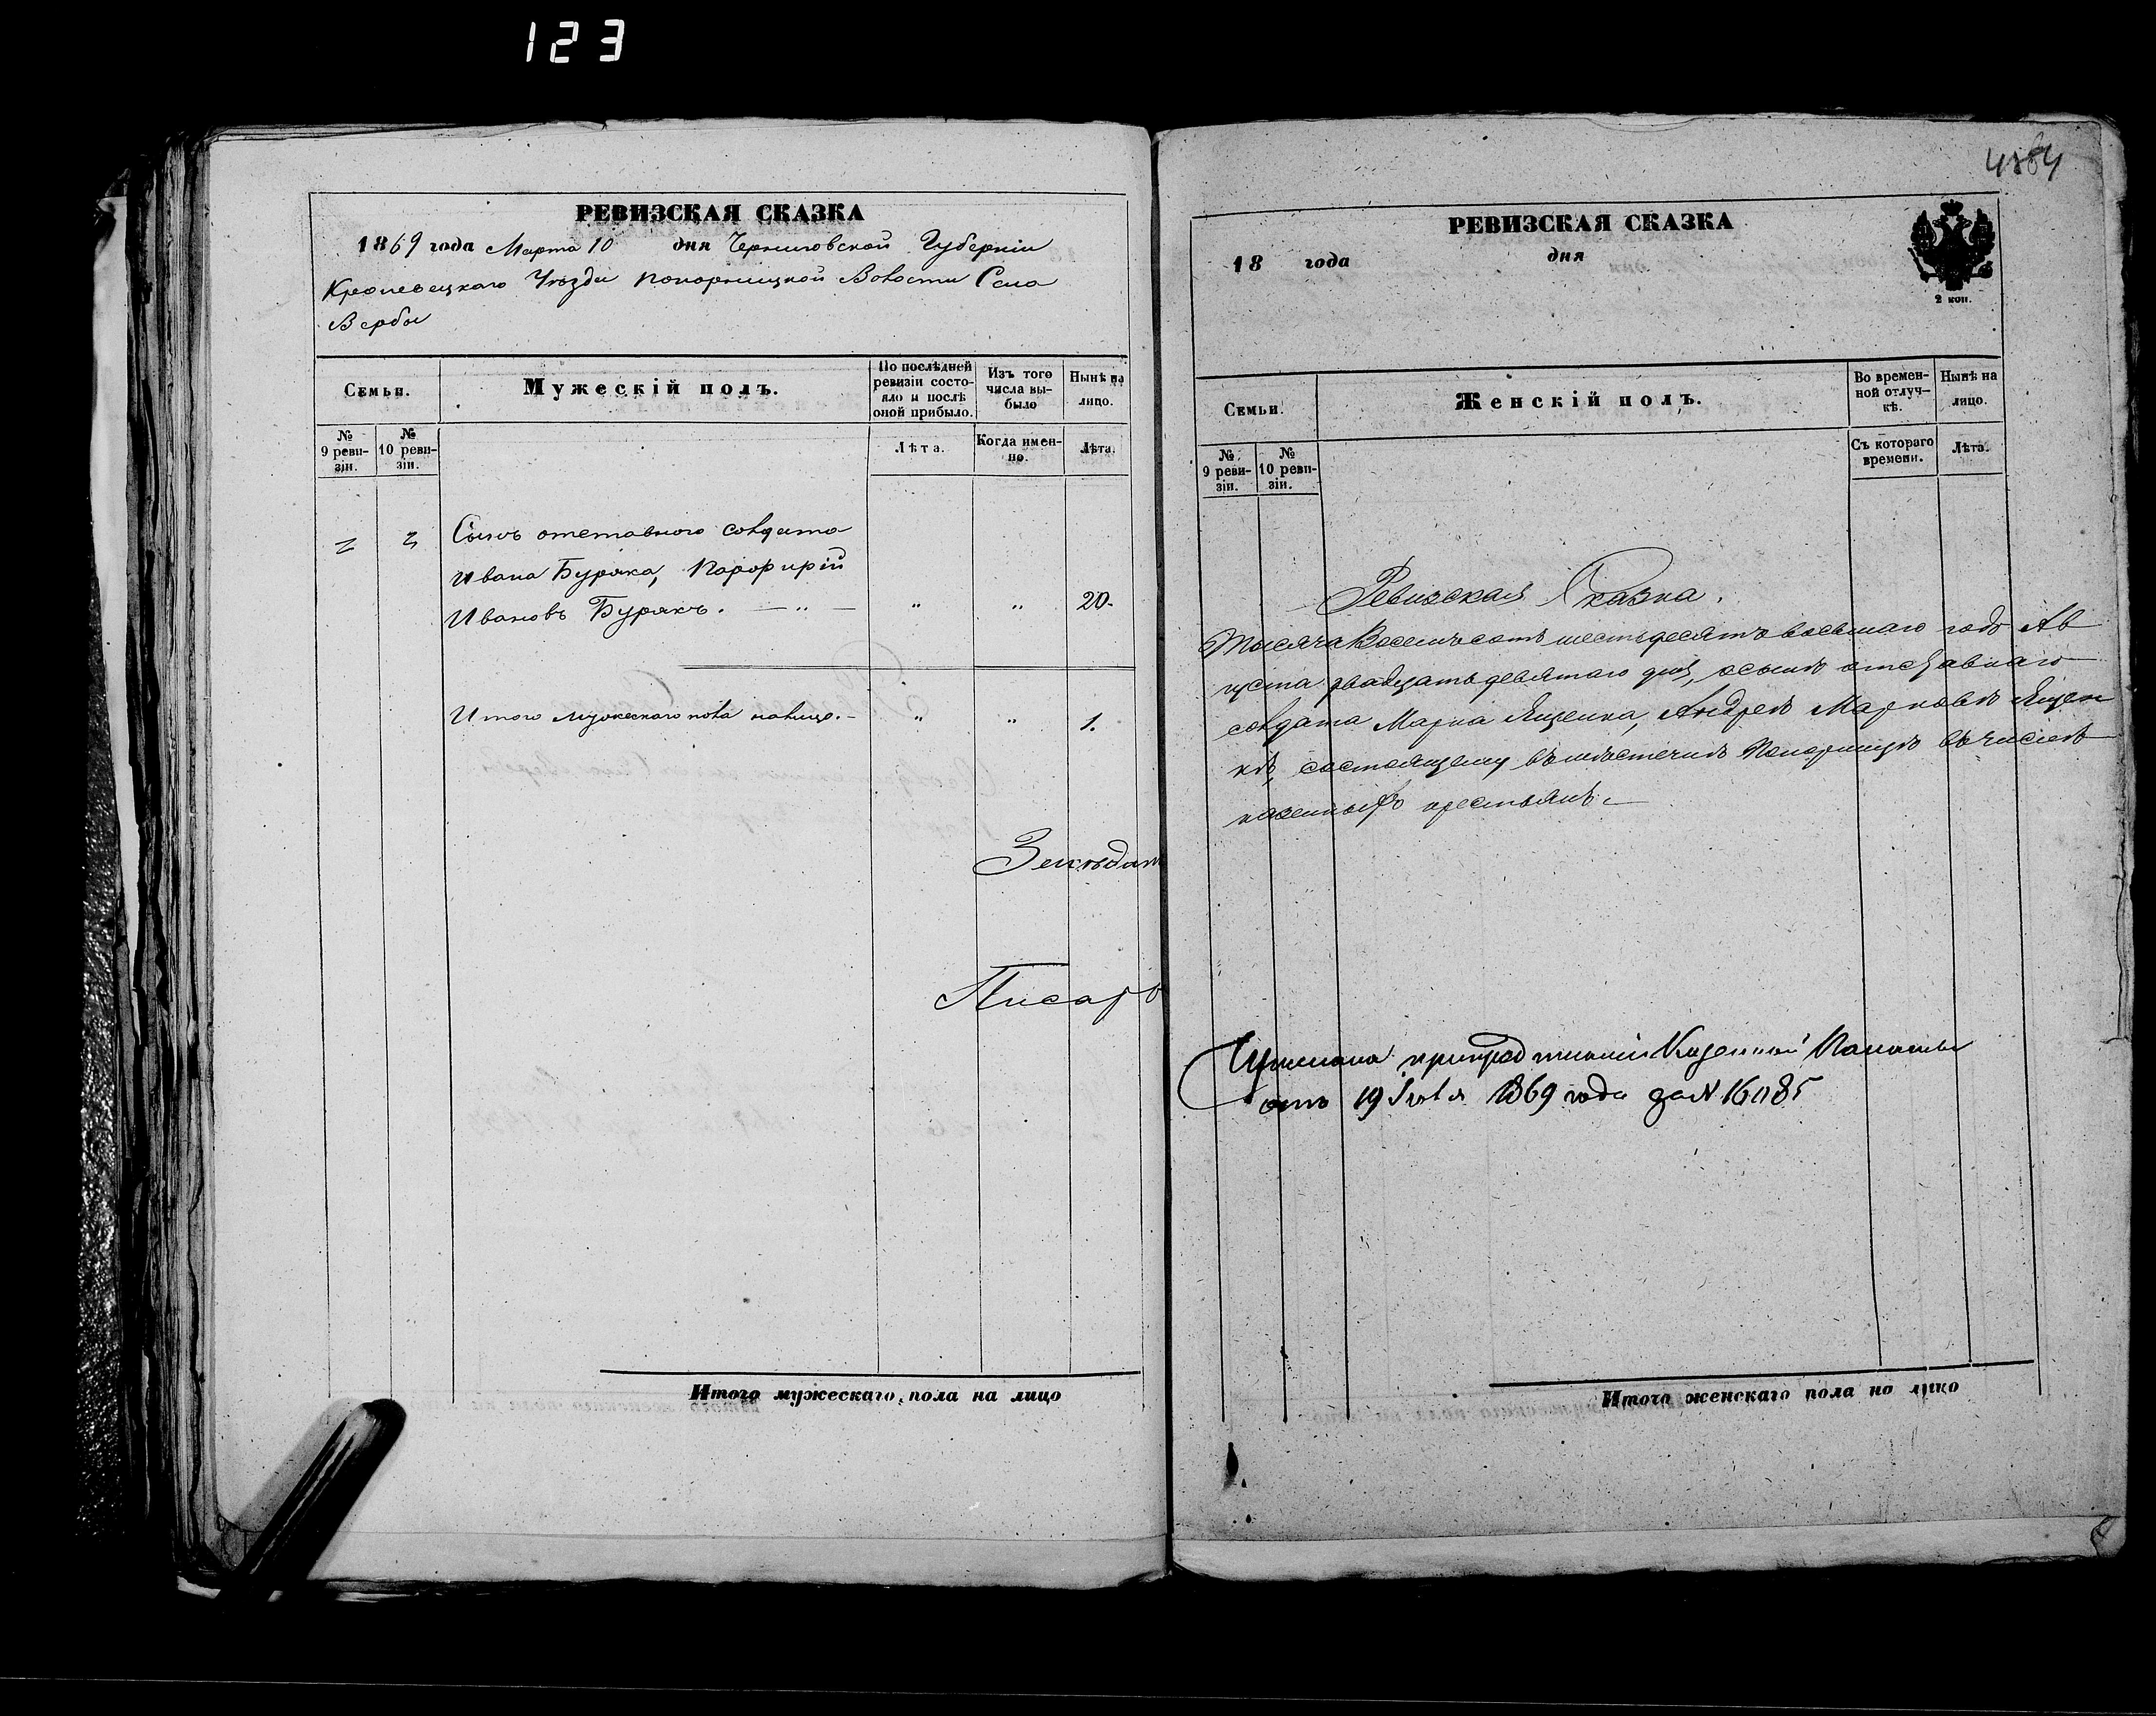 123
РЕВИЗСКАЯ СКАЗКА
1869 года Марта 10 дня Черниговской Губерніи
Кролевецкаго Уѣзда Понорницкой Волости Села
Вербы
Семьи.
Мужескій полъ.
По послѣдней ревизіи состояло и послѣ оной прибыло.
Изъ того числа выбыло
Нынѣ на лицо.
№ 9 ревизіи.
№ 10 ревизіи.
Лѣта.
Когда именно.
Лѣта.
Сынъ отставного солдата
Ивана Буряка, Порфирій
Ивановъ Бурякъ. — „ — „ „ 20.
Итого мужескаго пола налицо. - „ „ 1.
Писарь
Итого мужескаго пола на лицо
4384
РЕВИЗСКАЯ СКАЗКА
18 года дня
2 коп.
Семьи.
Женскій полъ.
Во временной отлучкѣ.
Нынѣ на лицо.
№ 9 ревизіи.
№ 10 ревизіи.
Съ котораго времени.
Лѣта.
Ревизская Сказка.
Тысяча Восемьсотъ шестьдесятъ восьмаго года Ав
густа двадцать девятаго дня, о сынѣ отставнаго
солдата Марка Яценка, Андреѣ Марковѣ Яцен
кѣ, состоящему въ мѣстечкѣ Понорницѣ въ числѣ
казенныхъ крестьянъ. —
Казенной Палаты
отъ 19 Іюля 1869 года за № 16085
Итого женскаго пола на лицо